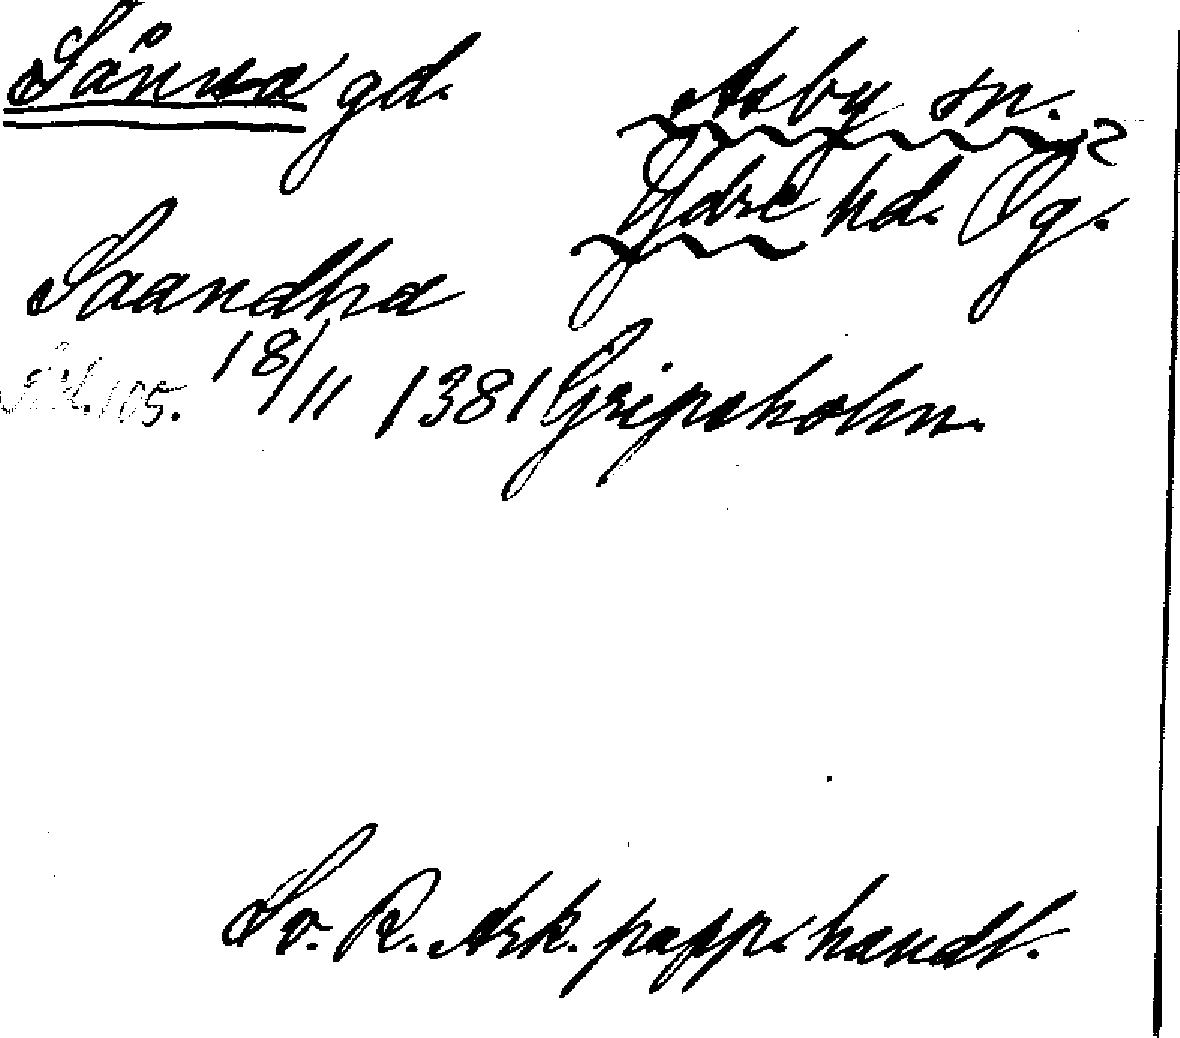 Sånna gd.
Asby sn.
Ydre hd. Ög.
Saandha
105. 18/11 1381 Gripsholm.
Sv. R. Ark. papp. handl.